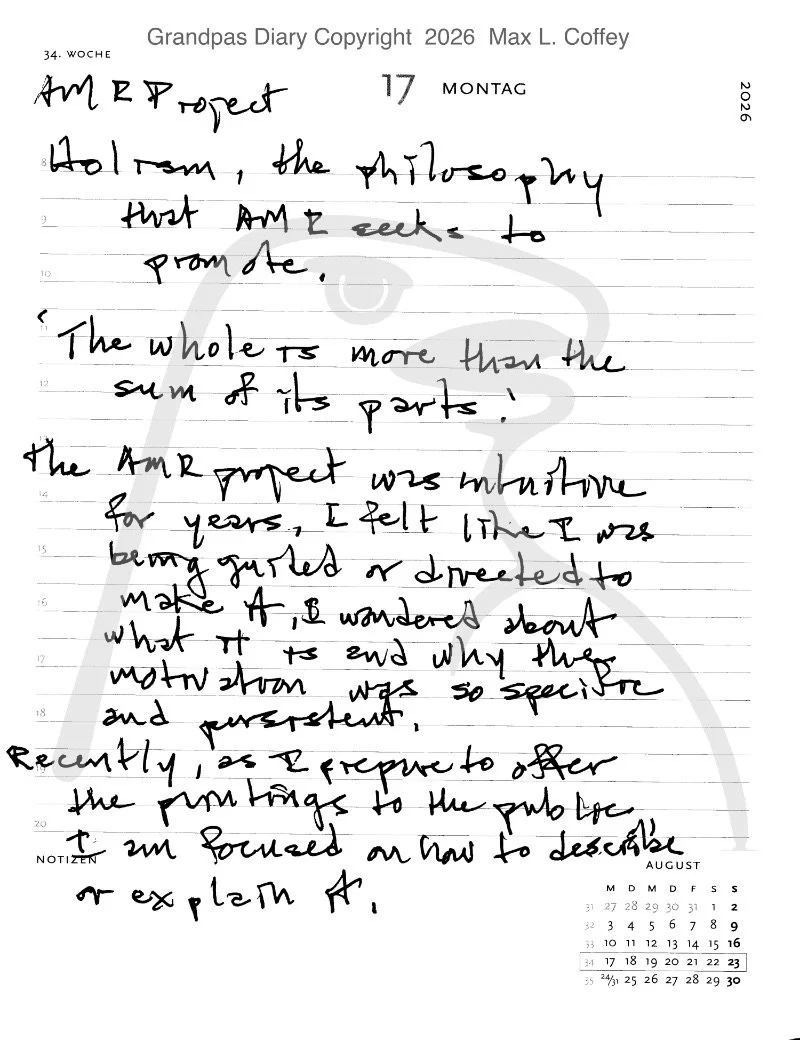 Grandpas Diary Copyright 2026 Max L. Coffey
34. WOCHE
17 MONTAG
2026
AMR Project
8
Holism, the philosophy
9
that AMR seeks to
10
promote.
11
'The whole is more than the
12
sum of its parts.'
13
The AMR project was intuitive
14
for years, I felt like I was
15
being guided or directed to
16
make it, I wondered about
what it is and why the
17
motivation was so specific
18
and persistent.
Recently, as I prepare to offer
19
the paintings to the public
20
I am focused on how to describe
NOTIZEN
or explain it.
AUGUST
M D M D F S S
31 27 28 29 30 31 1 2
32 3 4 5 6 7 8 9
33 10 11 12 13 14 15 16
34 17 18 19 20 21 22 23
35 24/31 25 26 27 28 29 30